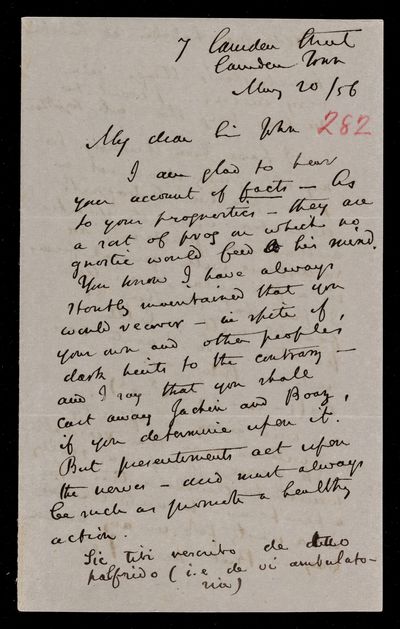 7 Camden Street
Camden Town
May 20/56
282
My dear Sir John
I am glad to hear
your account of facts - As
to your prognostics - they are
a sort of prog on which no
gnostic would feed his mind.
You know I have always
stoutly maintained that you
would recover - in spite of
your own and other peoples
dark hints to the contrary -
and I say that you shall
cast away Jachin and Boaz,
if you determine upon it.
But presentiments act upon
the nerves - and must always
be such as promote a healthy
action.
Sic tibi rescribo de
palfrido (i.e. de vi ambulato-
ria)